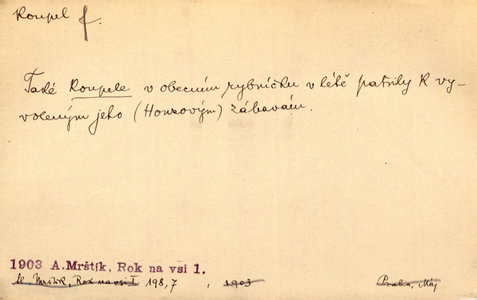 Koupel f.
Také Koupele v obecním rybníčku v létě patřily k vy-
voleným jeho (Honzovým) zábavám.
1903 A. Mrštík, Rok na vsi 1.
Al. Mrštík, Rok na vsi I 198,7 , 1903 Praha, Máj